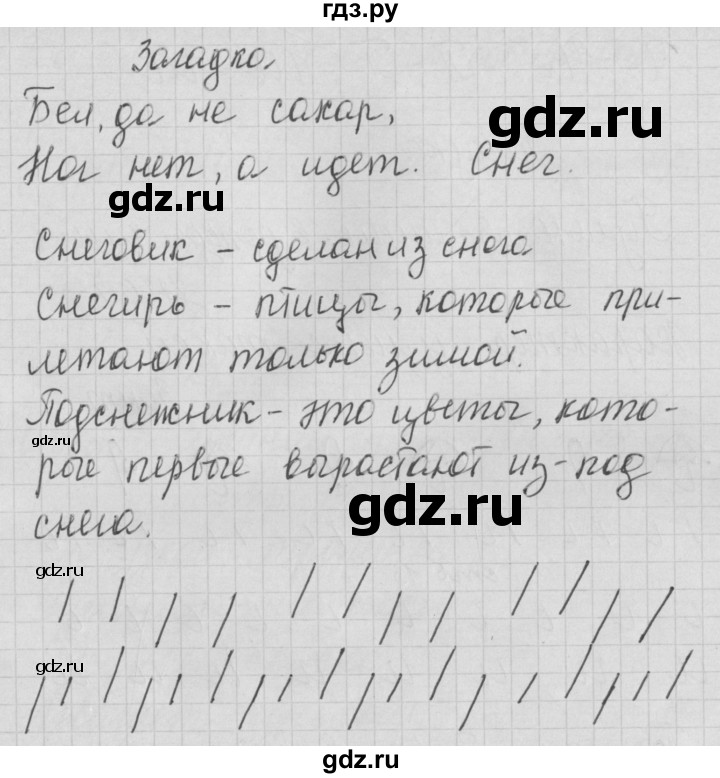 гдз.ру
Загадка.
Бел, да не сахар,
gdz.ru
Ног нет, а идет. Снег.
gdz.ru
Снеговик – сделан из снега
Снегирь – птицы, которые при-
летают только зимой.
Подснежник – это цветы, кото-
gdz.ru
рые первые вырастают из-под
gdz.ru
снега.
gdz.ru
gdz.ru
gdz.ru